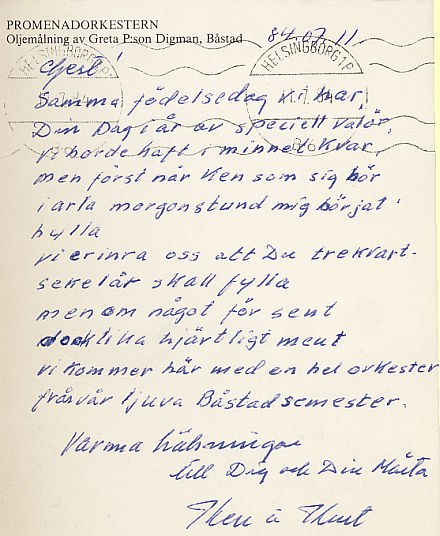 PROMENADORKESTERN
Oljemålning av Greta P:son Digman, Båstad
84.07.11.
HELSINGBORG 1 P
HELSINGBORG 1 P
11.7.84
Gest!
Samma födelsedag vi har,
Din Dag i år av speciell valör,
vi borde haft i minnet kvar,
men först när Ken som sig bör
i arla morgonstund mig börjat
hylla
vi erinra oss att Du trekvart-
sekelår skall fylla
men om något för sent
dock lika hjärtligt ment
vi kommer här med en hel orkester
från vår ljuva Båstadsemester.
Varma hälsningar
till Dig och Din Märta